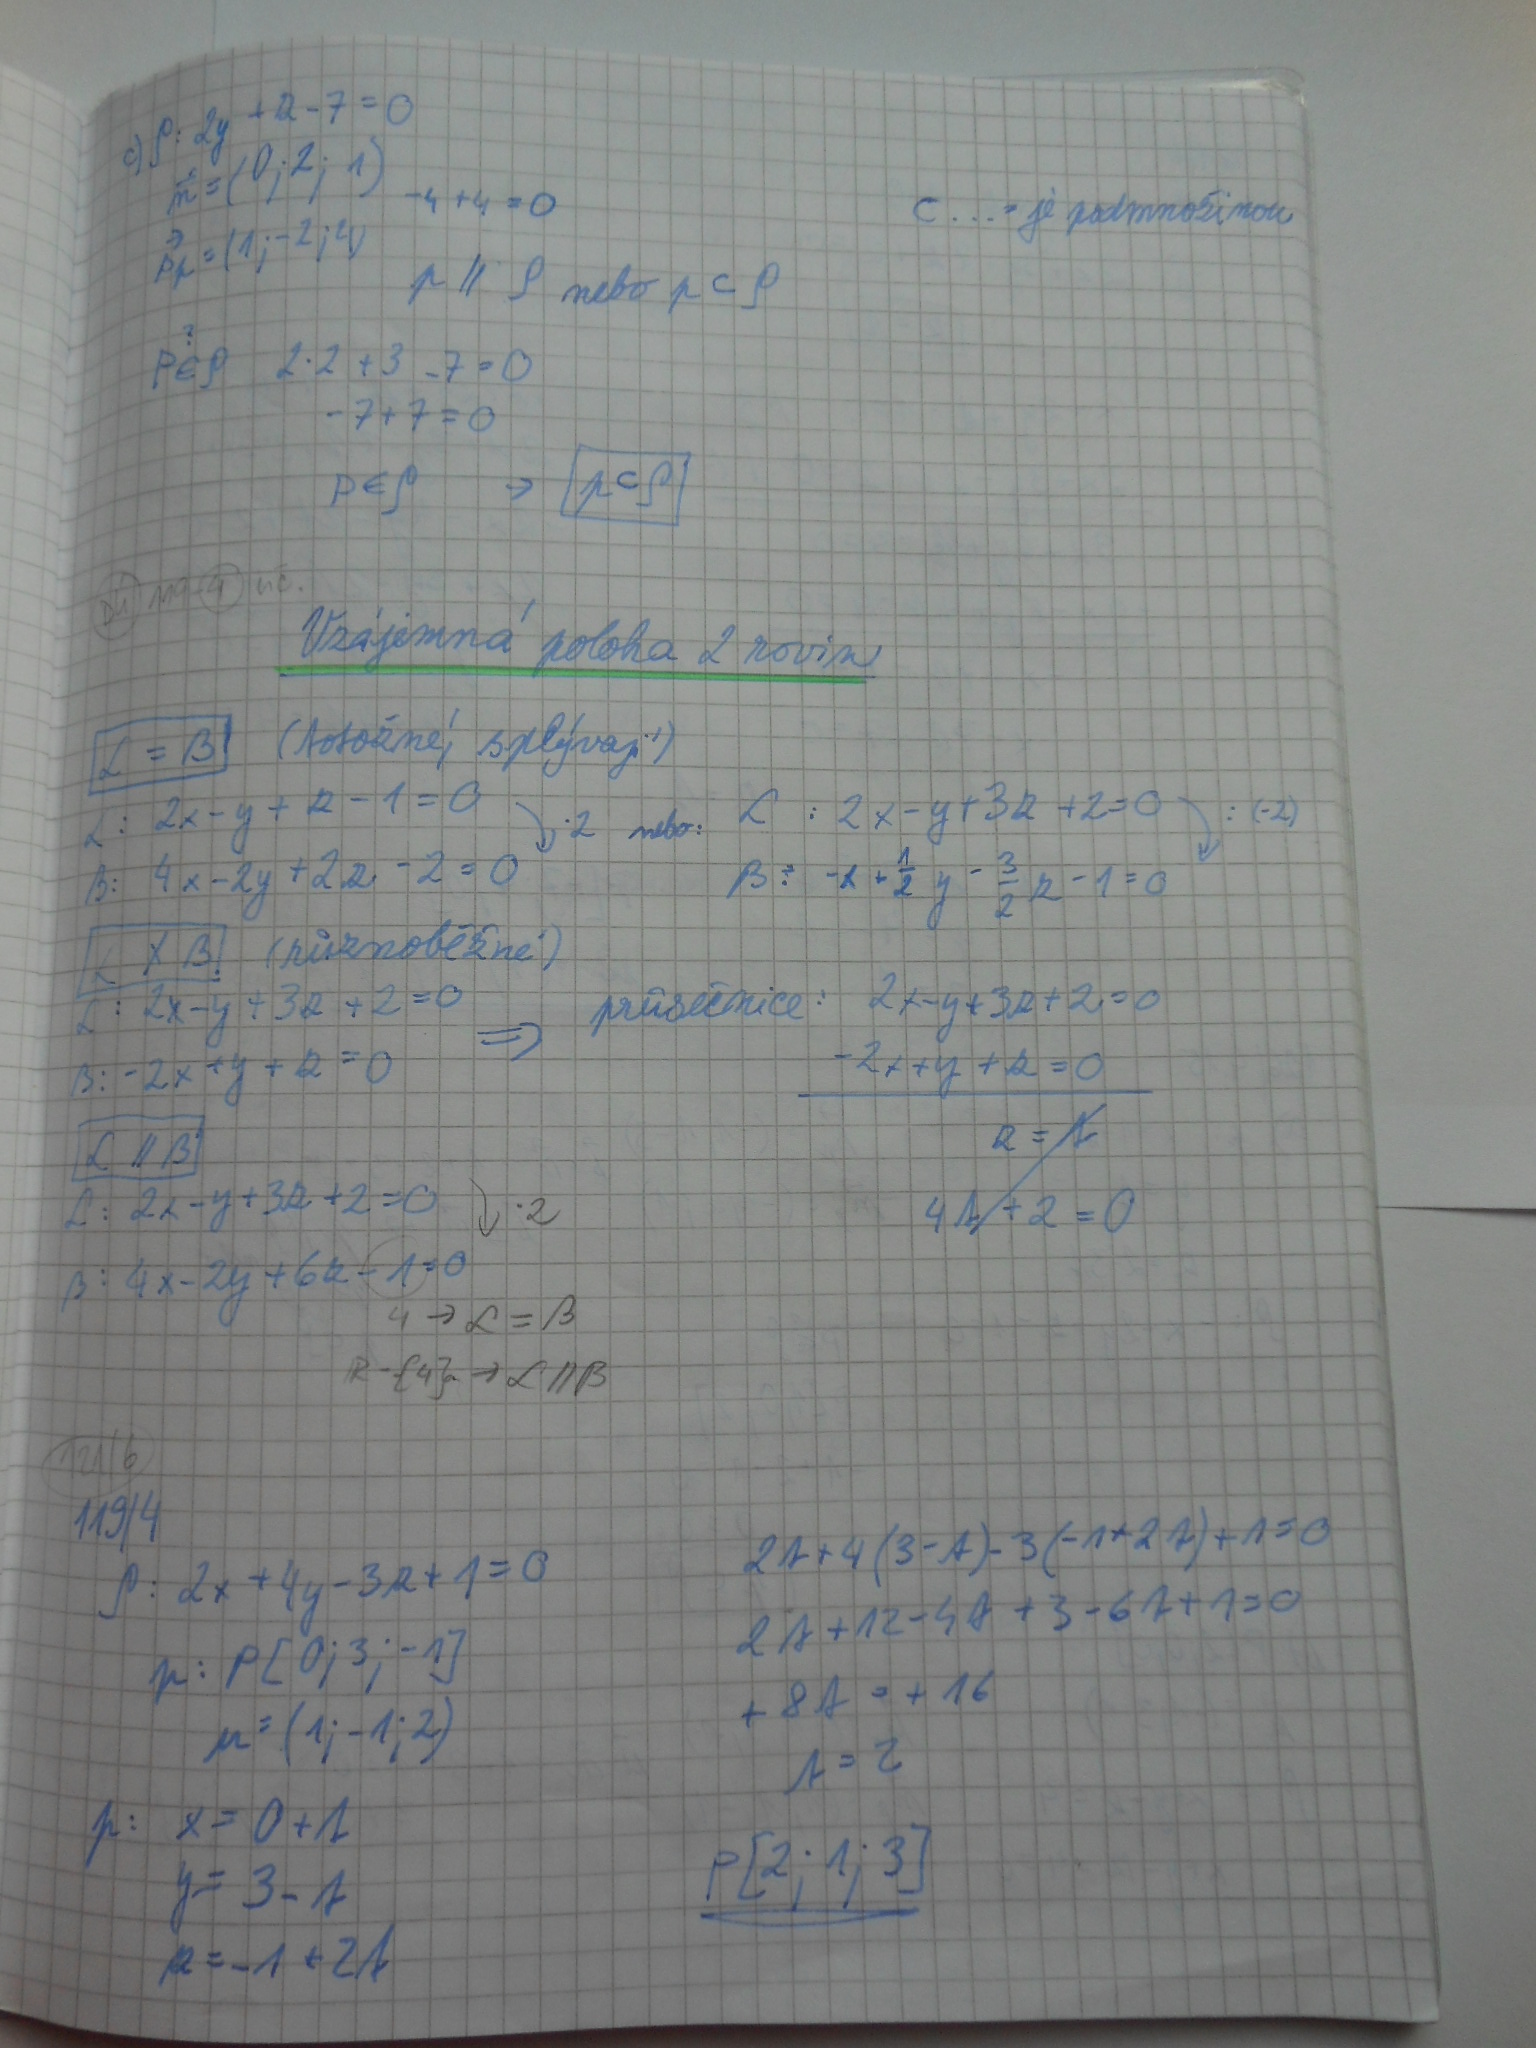 c) ρ: 2y + z - 7 = 0
n⃗ = (0; 2; 1)
-4 + 4 = 0
⊂ ... = je podmnožinou
= (1; -2; 4)
p ∥ ρ nebo p ⊂ ρ
P ∈? ρ 2·2 + 3 - 7 = 0
-7 + 7 = 0
P ∈ ρ → p ⊂ ρ
DÚ 119/4 uč.
Vzájemná poloha 2 rovin
α = β (totožné, splývají)
α: 2x - y + z - 1 = 0 ·2 nebo: α: 2x - y + 3z + 2 = 0 : (-2)
β: 4x - 2y + 2z - 2 = 0 β: -x + 1/2 y - 3/2 z - 1 = 0
α ∦ β (různoběžné)
α: 2x - y + 3z + 2 = 0 ⇒ průsečnice: 2x - y + 3z + 2 = 0
β: -2x + y + z = 0 -2x + y + z = 0
z = t
4t + 2 = 0
α ∥ β
α: 2x - y + 3z + 2 = 0 ·2
β: 4x - 2y + 6z - 1 = 0
4 → α = β
R - {4} → α ∥ β
121/6
119/4
ρ: 2x + 4y - 3z + 1 = 0
p: P[0; 3; -1]
u = (1; -1; 2)
p: x = 0 + t
y = 3 - t
z = -1 + 2t
2t + 4(3 - t) - 3(-1 + 2t) + 1 = 0
2t + 12 - 4t + 3 - 6t + 1 = 0
+ 8t = + 16
t = 2
P[2; 1; 3]